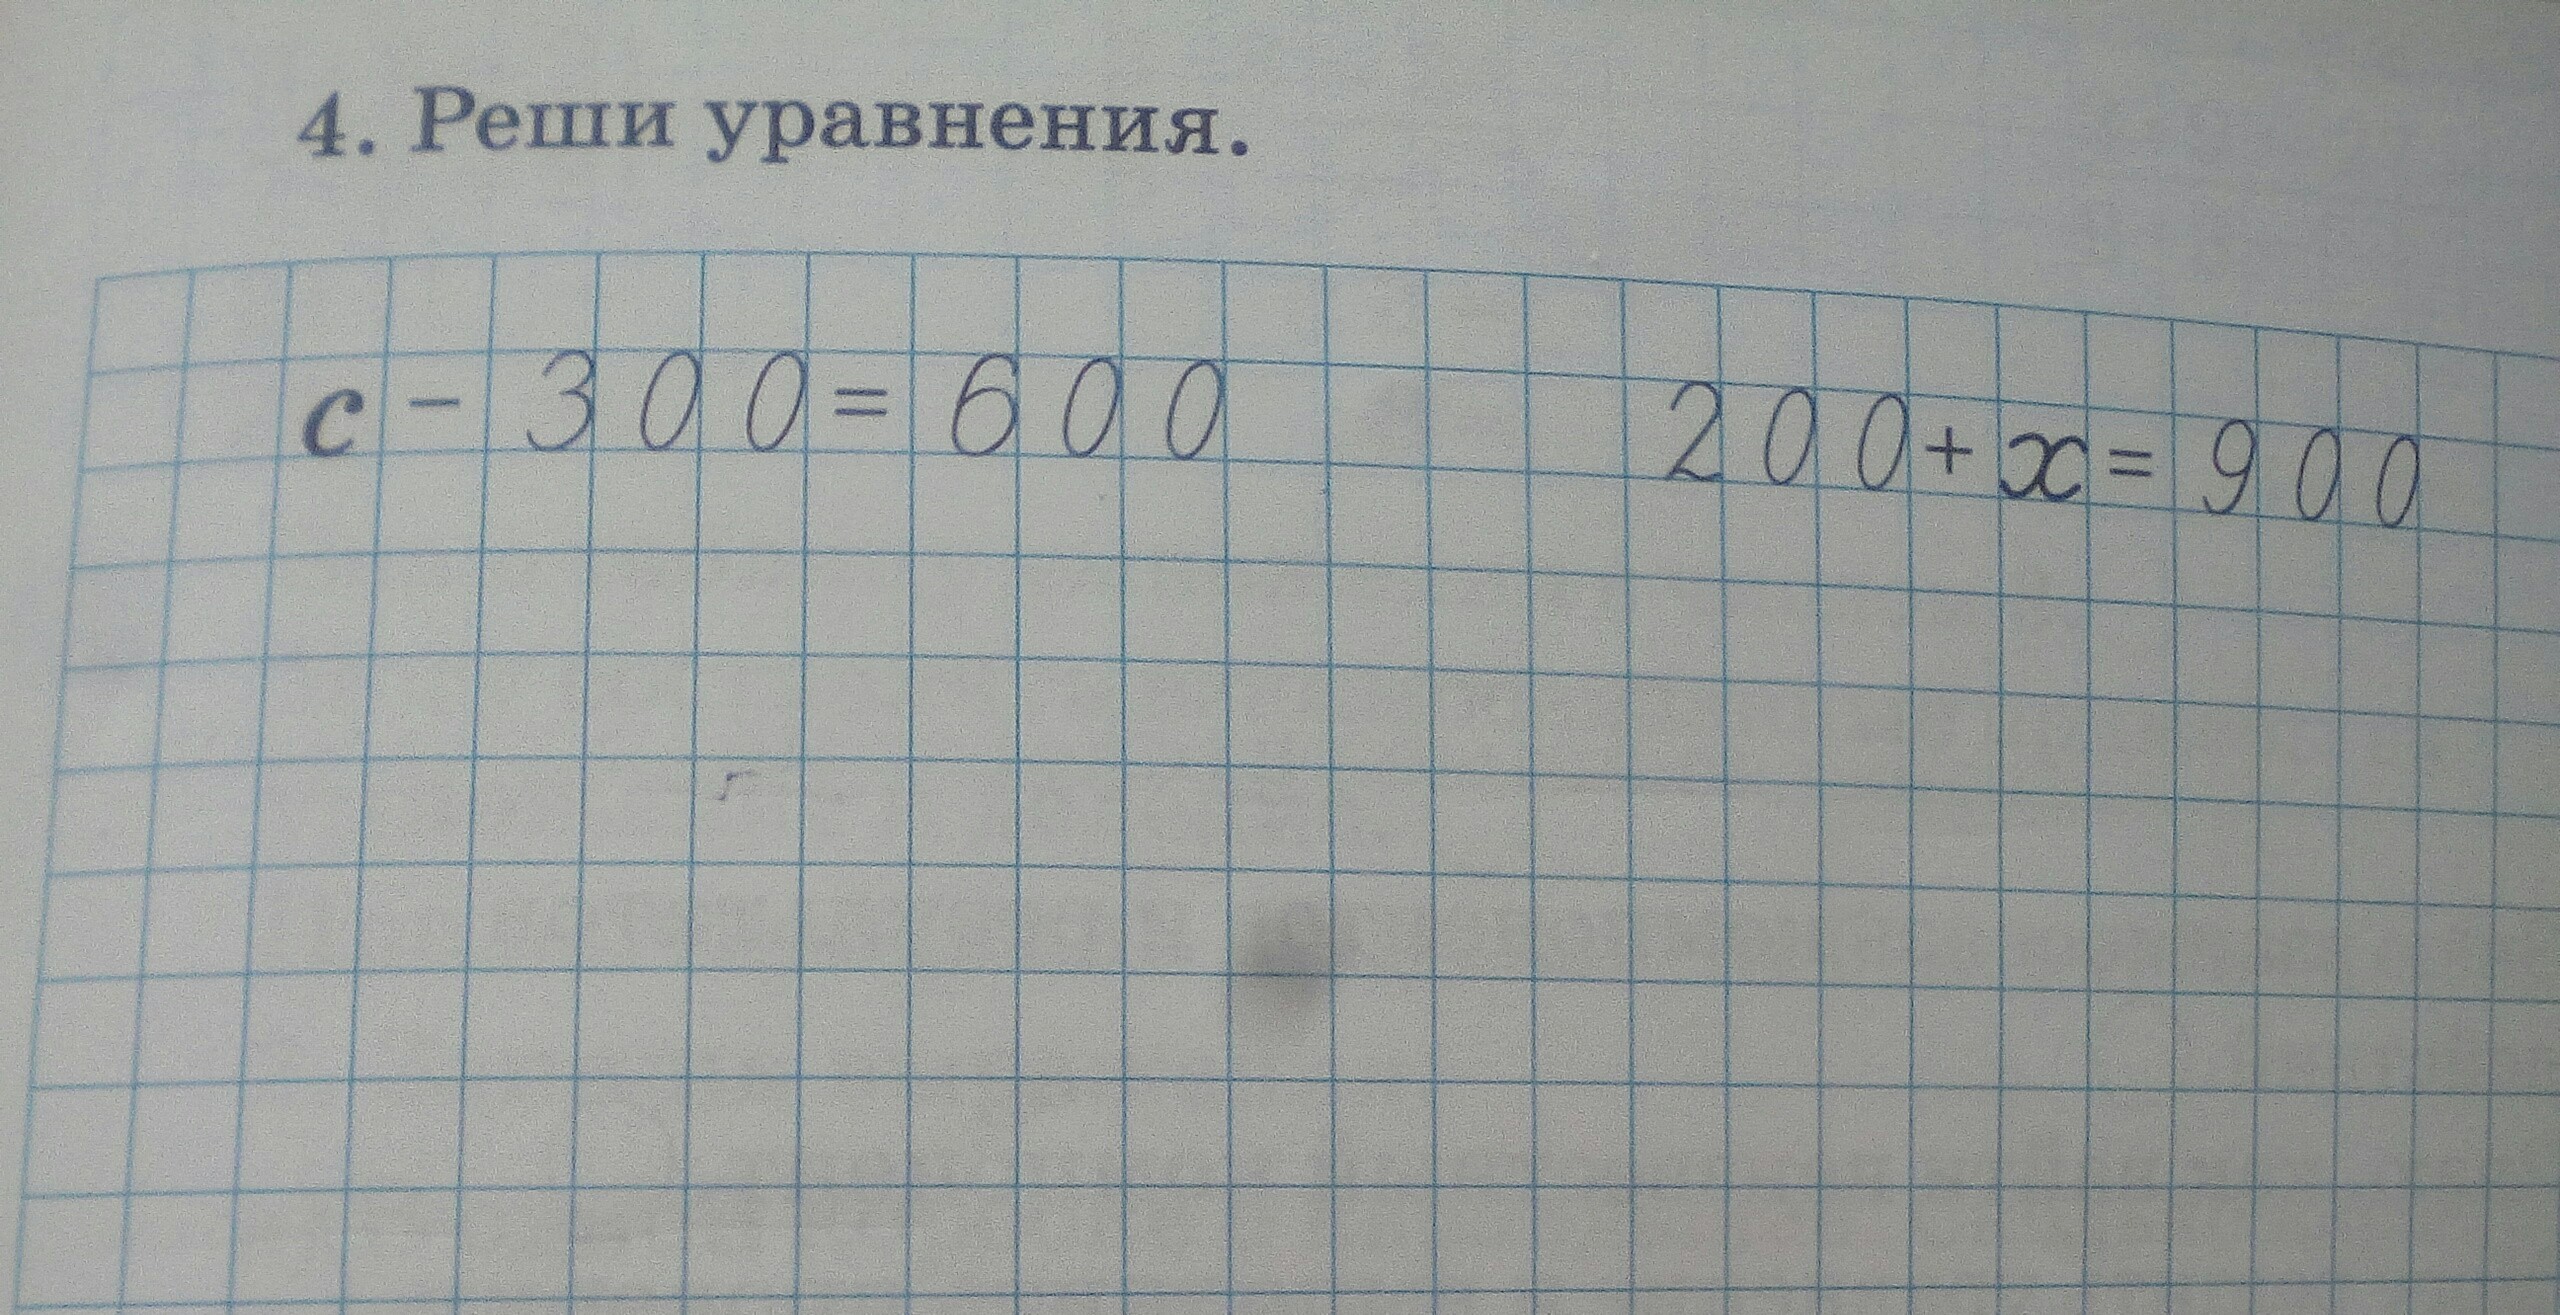 4. Реши уравнения.
с - 300 = 600
200 + х = 900